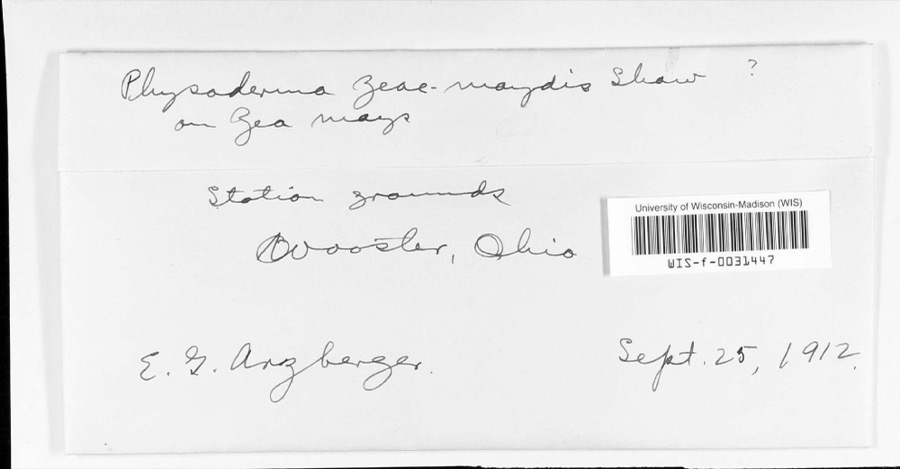 Physoderma Zeae-maydis Shaw ?
on Zea mays
Station grounds
Wooster, Ohio
University of Wisconsin-Madison (WIS)
WIS-f-0031447
E. G. Arzberger.
Sept. 25, 1912.